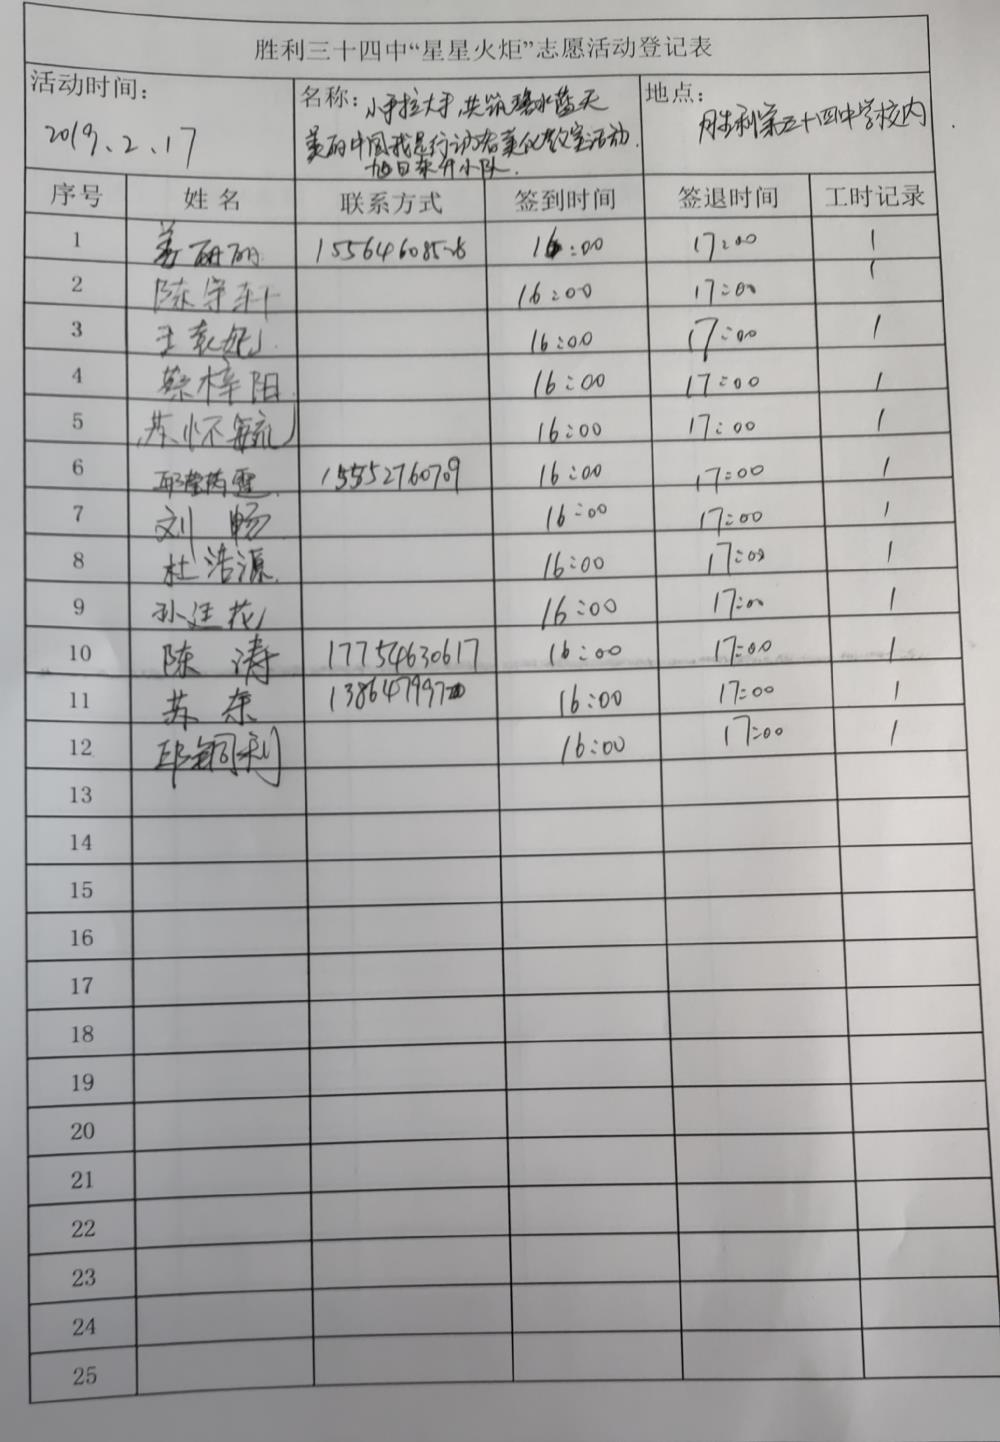 胜利三十四中“星星火炬”志愿活动登记表
活动时间： 名称：小手拉大手，共筑碧水蓝天 地点：
2019.2.17 美丽中国我是行动者美化教室活动. 胜利第三十四中学校内
旭日东升小队.
序号 姓名 联系方式 签到时间 签退时间 工时记录
1 姜丽丽 16:00 17:00 1
2 陈宇轩 16:00 17:00 1
3 王 16:00 17:00 1
4 蔡梓阳 16:00 17:00 1
5 苏怀毓 16:00 17:00 1
6 15552760709 16:00 17:00 1
7 刘畅 16:00 17:00 1
8 杜浩源 16:00 17:00 1
9 孙廷花 16:00 17:00 1
10 陈涛 17754630617 16:00 17:00 1
11 苏东 16:00 17:00 1
12 16:00 17:00 1
13
14
15
16
17
18
19
20
21
22
23
24
25